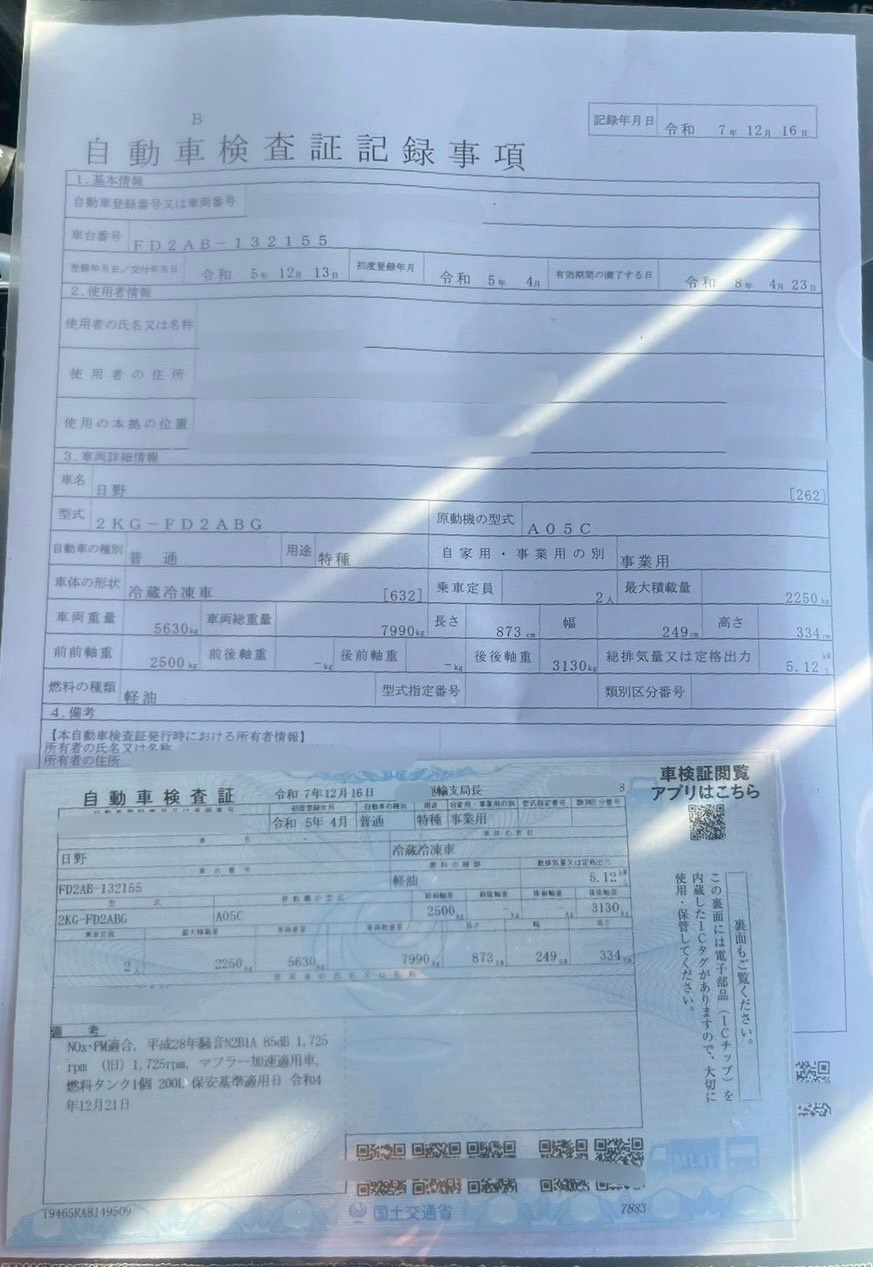 B
記録年月日 令和 7年 12月 16日
自動車検査証記録事項
1.基本情報
自動車登録番号又は車両番号
車台番号 FD2AB-132155
登録年月日/交付年月日 令和 5年 12月 13日 初度登録年月 令和 5年 4月 有効期間の満了する日 令和 8年 4月 23日
2.使用者情報
使用者の氏名又は名称
使用者の住所
使用の本拠の位置
3.車両詳細情報
車名 日野 [262]
型式 2KG-FD2ABG 原動機の型式 A05C
自動車の種別 普通 用途 特種 自家用・事業用の別 事業用
車体の形状 冷蔵冷凍車 [632] 乗車定員 2人 最大積載量 2250kg
車両重量 5630kg 車両総重量 7990kg 長さ 873cm 幅 249cm 高さ 334cm
前前軸重 2500kg 前後軸重 -kg 後前軸重 -kg 後後軸重 3130kg 総排気量又は定格出力 5.12 kW L
燃料の種類 軽油 型式指定番号 類別区分番号
4.備考
【本自動車検査証発行時における所有者情報】
所有者の氏名又は名称
所有者の住所
自動車検査証 令和 7年12月16日 運輸支局長 8
車検証閲覧
アプリはこちら
初度登録年月 自動車の種別 用途 自家用・事業用の別 型式指定番号 類別区分番号
令和 5年 4月 普通 特種 事業用
車名 車体の形状
日野 冷蔵冷凍車
車台番号 燃料の種類 総排気量又は定格出力
FD2AB-132155 軽油 5.12 kW L
型式 原動機の型式 前前軸重 前後軸重 後前軸重 後後軸重
2KG-FD2ABG A05C 2500kg -kg -kg 3130kg
乗車定員 最大積載量 車両重量 車両総重量 長さ 幅 高さ
2人 2250kg 5630kg 7990kg 873cm 249cm 334cm
使用者の氏名又は名称
備考
NOx・PM適合, 平成28年騒音N2B1A 85dB 1,725
rpm (旧) 1,725rpm, マフラー加速適用車,
燃料タンク1個 200L 保安基準適用日 令和4
年12月21日
裏面もご覧ください。
この裏面には電子部品(ICチップ)を
内蔵したICタグがありますので、大切に
使用・保管してください。
T9465RA8149509 国土交通省 7883